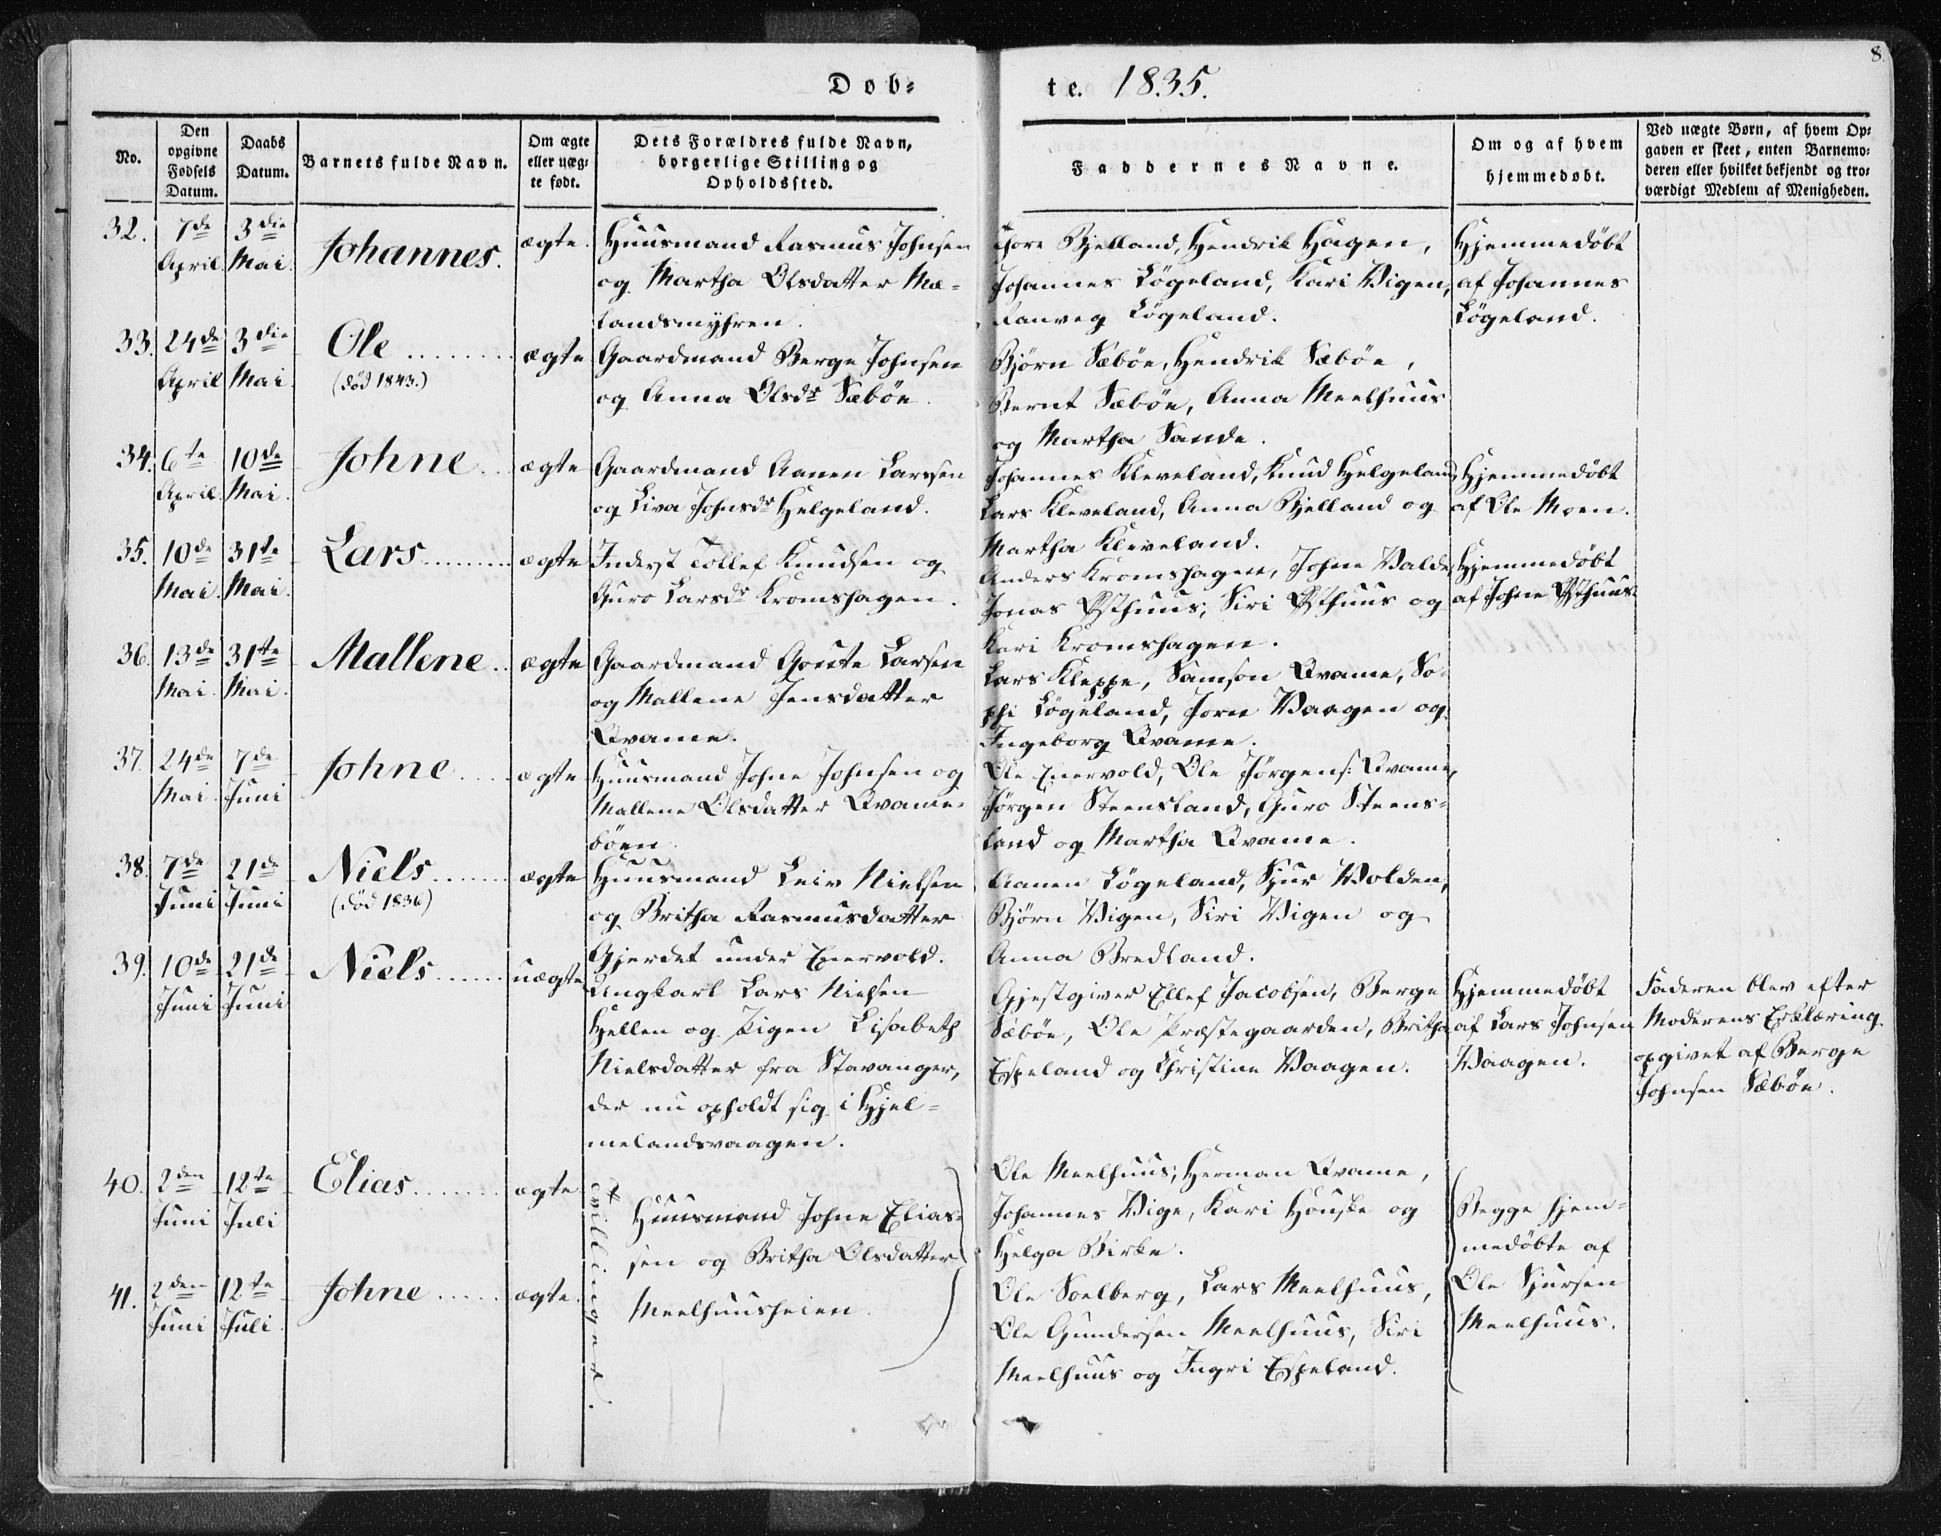 8.
Døb=
te. 1835.
No.
Den opgivne Fødsels Datum.
Daabs Datum.
Barnets fulde Navn.
Om ægte eller uæg= te født.
Dets Forældres fulde Navn, borgerlige Stilling og Opholdssted.
Faddernes Navne.
Om og af hvem hjemmedøbt.
Ved uægte Børn, af hvem Op= gaven er skeet, enten Barnemo= deren eller hvilket bekjendt og tro= værdigt Medlem af Menigheden.
32.
7de April
3die Mai.
Johannes.
ægte.
Huusmand Rasmus Johnsen
og Martha Olsdatter Mæ=
landsmyhren.
Thore Bjelland, Hendrik Hagen,
Johannes Løgeland, Kari Vigen,
Ranveg Løgeland.
Hjemmedøbt
af Johannes
Løgeland.
33.
24de April
3die Mai
Ole ........
(død 1843.)
ægte
Gaardmand Berge Johnsen
og Anna Olsdr Sæbøe.
Bjørn Sæbøe, Hendrik Sæbøe,
Bernt Sæbøe, Anna Meelhuus
og Martha Sande.
34.
6te April.
10de Mai.
Johne ...
ægte
Gaardmand Aanen Larssen
og Liva Johnsdr Helgeland.
Johannes Kleveland, Knud Helgeland,
Lars Kleveland, Anna Bjelland og
Martha Kleveland.
Hjemmedøbt
af Ole Moen.
35.
10de Mai.
31te Mai.
Lars .........
ægte
Inderst Tollef Knudsen og
Guro Larsdr Kromshagen.
Anders Kromshagen, Johne Valde,
Jonas Østhuus, Siri Østhuus og
Kari Kromshagen.
Hjemmedøbt
af Johne Østhuus.
36.
13de Mai.
31te Mai.
Mallene ..
ægte
Gaardmand Goute Larsen
og Mallene Jensdatter
Qvame.
Lars Kleppe, Samson Qvame, So=
phi Løgeland, Jorn Vaagen og
Ingeborg Qvame.
37.
24de Mai.
7de Juni
Johne ....
ægte
Huusmand Johne Johnsen og
Mallene Olsdatter Qvame=
bøen.
Ole Enervold, Ole Jørgens: Qvame,
Jørgen Steensland, Guro Steens=
land og Martha Qvame.
38.
7de Juni
21de Juni
Niels .......
(død 1836)
ægte
Huusmand Leiv Nielsen
og Britha Rasmusdatter
Gjerdet under Enervold.
Aanen Løgeland, Sjur Volden,
Bjørn Vigen, Siri Vigen og
Anna Bredland.
39.
10de Juni
21de Juni
Niels ......
uægte
Ungkarl Lars Nielsen
Hellen og Pigen Lisabeth
Nielsdatter fra Stavanger,
der nu opholdt sig i Hjel=
melandsvaagen.
Gjestgiver Ellef Jacobsen, Berge
Sæbøe, Ole Præstegaarden, Britha
Espeland og Christine Vaagen.
Hjemmedøbt
af Lars Johnsen
Vaagen.
Faderen blev efter
Moderens Erklæring
opgivet af Berge
Johnsen Sæbøe.
40.
2den Juni
12te Juli
Elias .......
ægte
Tvillinger.
Huusmand Johne Elias=
sen og Britha Olsdatter
Meelhuusheien.
Ole Meelhuus, Herman Qvame,
Johannes Vige, Kari Houske og
Helga Birke.
Begge hjem=
medøbte af
Ole Sjursen
Meelhuus.
41.
2den Juni
12te Juli.
Johne .....
ægte.
Ole Soelberg, Lars Meelhuus,
Ole Gundersen Meelhuus, Siri
Meelhuus og Ingri Espeland.